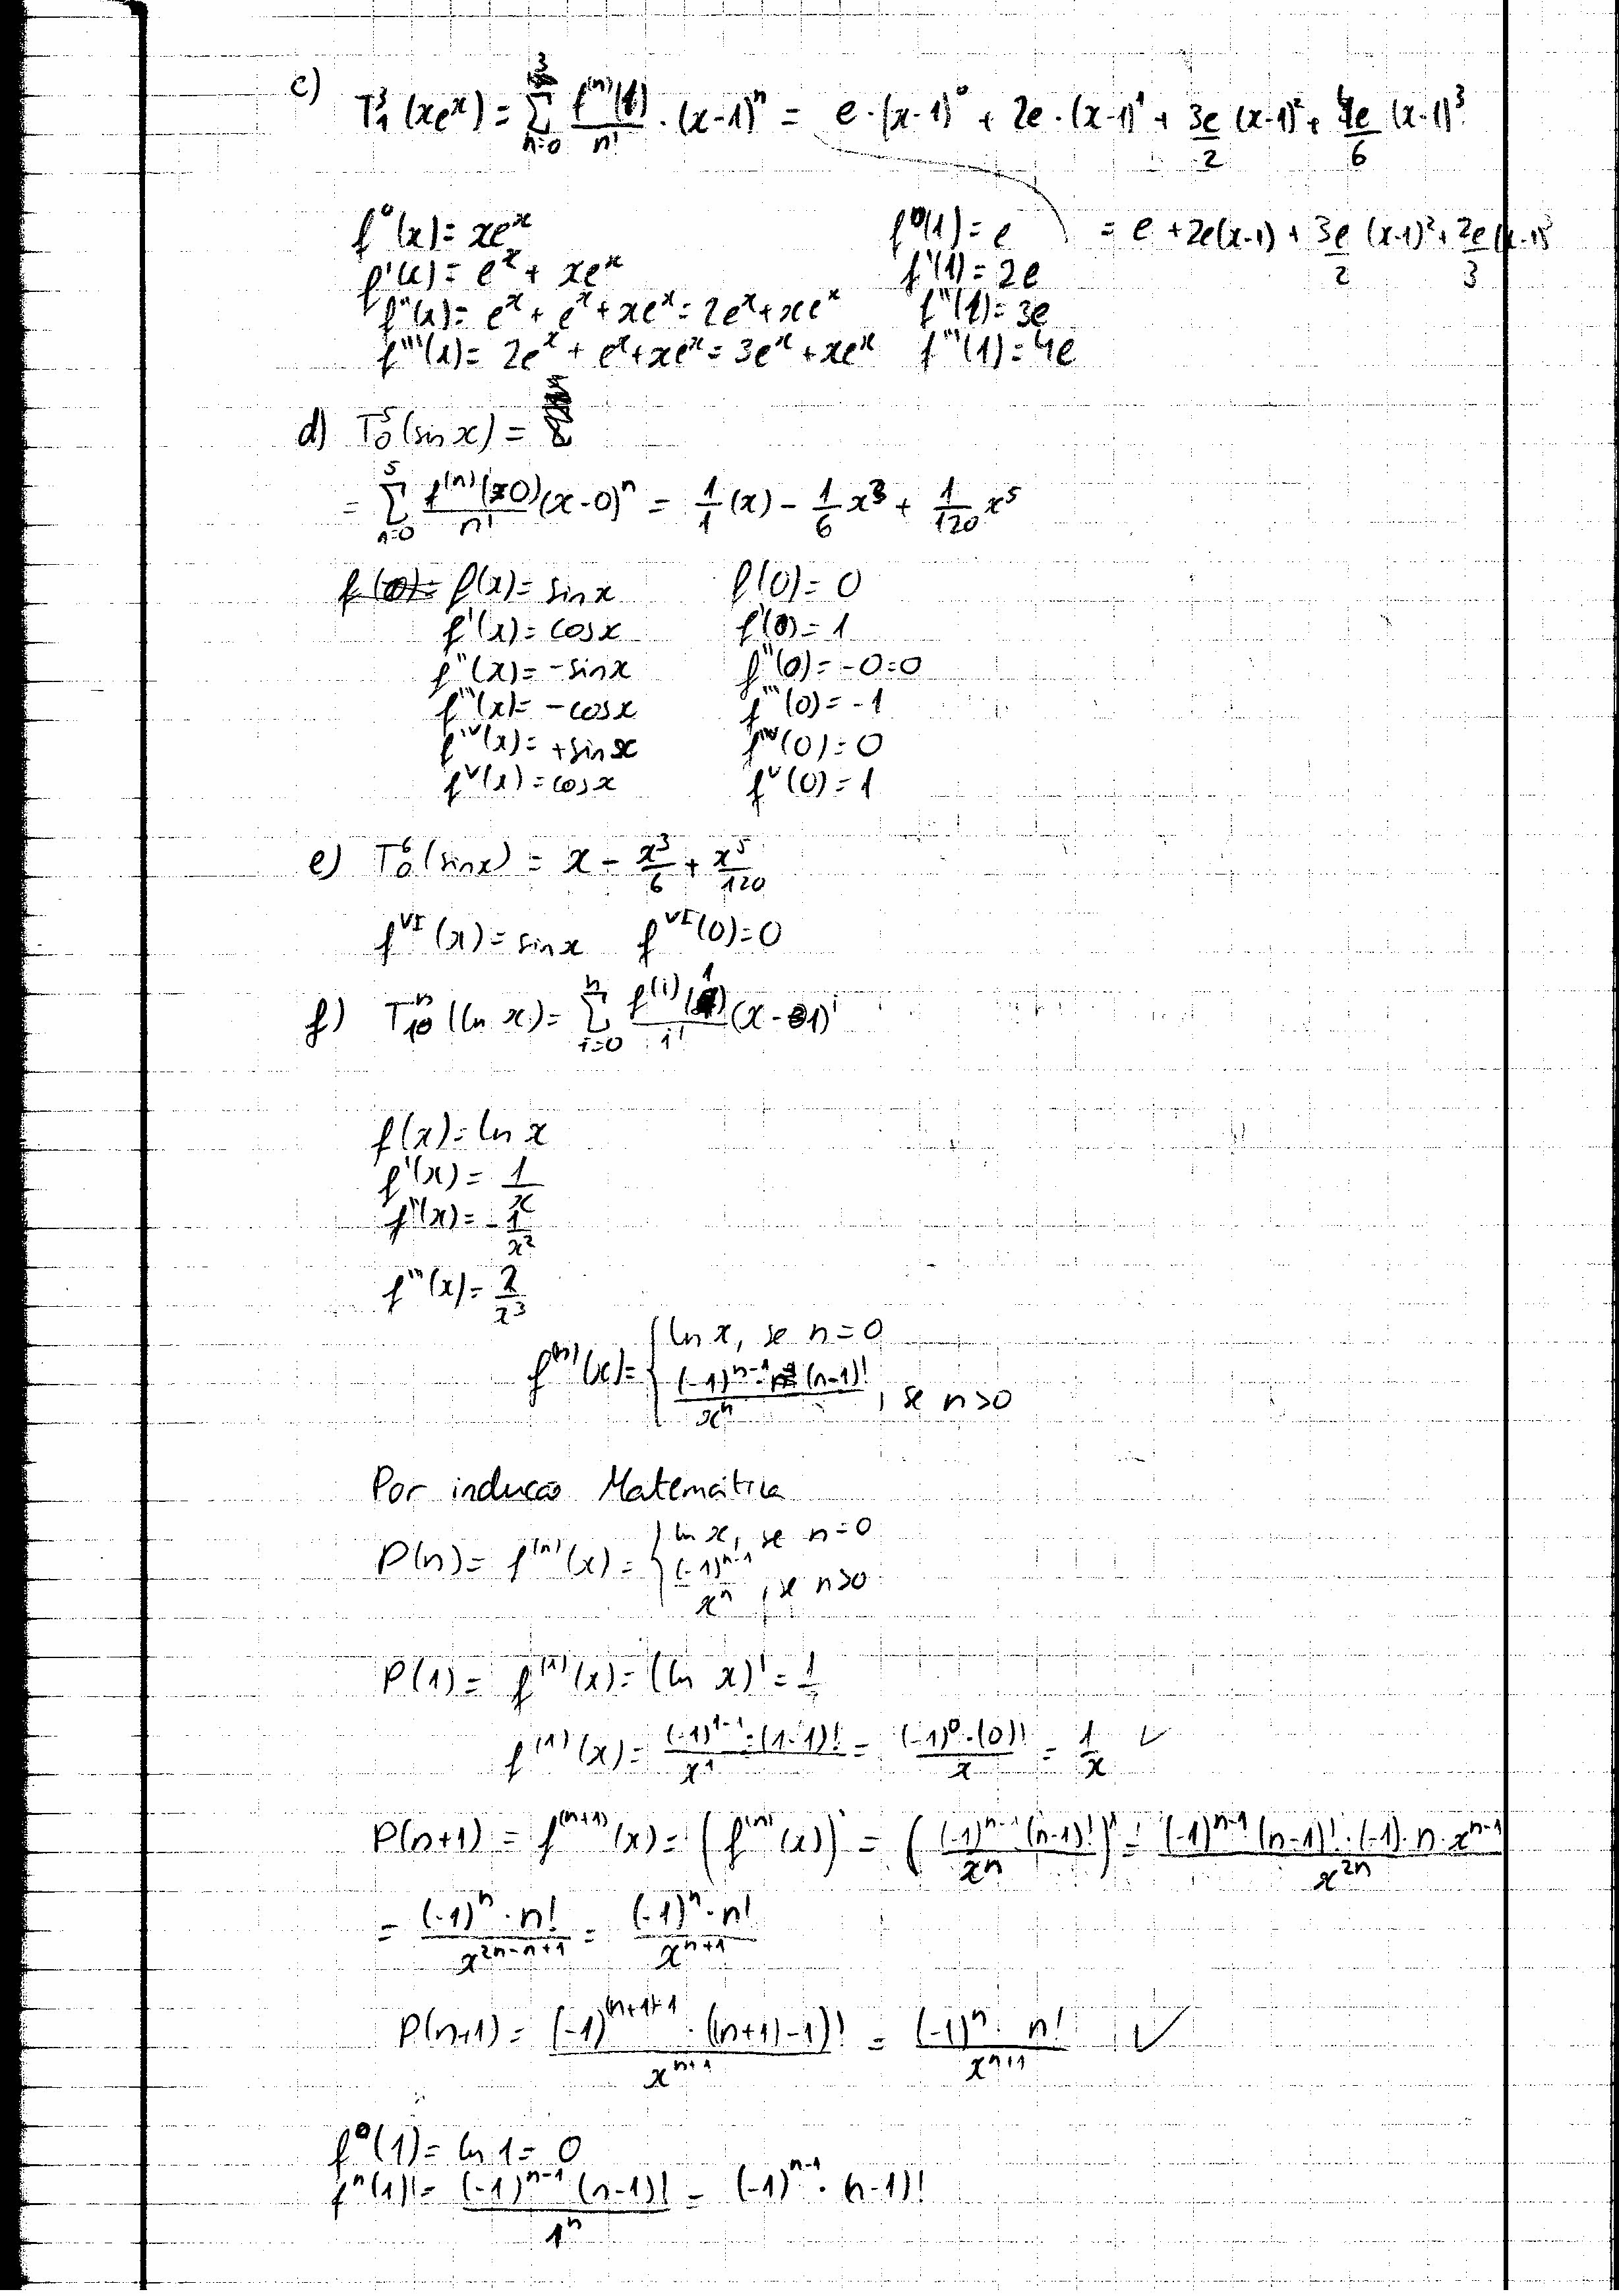 c) T₁³(xeˣ) = Σ_{n=0}^{3} f⁽ⁿ⁾(1)/n! · (x-1)ⁿ = e·(x-1)⁰ + 2e·(x-1)¹ + 3e/2 (x-1)² + 4e/6 (x-1)³
= e + 2e(x-1) + 3e/2 (x-1)² + 2e/3 (x-1)³
f⁰(x) = xeˣ f⁰(1) = e
f'(x) = eˣ + xeˣ f'(1) = 2e
f''(x) = eˣ + eˣ + xeˣ = 2eˣ + xeˣ f''(1) = 3e
f'''(x) = 2eˣ + eˣ + xeˣ = 3eˣ + xeˣ f'''(1) = 4e
d) T₀⁵(sin x) =
= Σ_{n=0}^{5} f⁽ⁿ⁾(0)/n! (x-0)ⁿ = 1/1 (x) - 1/6 x³ + 1/120 x⁵
f(x) = sin x f(0) = 0
f'(x) = cos x f'(0) = 1
f''(x) = -sin x f''(0) = -0 = 0
f'''(x) = -cos x f'''(0) = -1
f^{IV}(x) = +sin x f^{IV}(0) = 0
f^{V}(x) = cos x f^{V}(0) = 1
e) T₀⁶(sin x) = x - x³/6 + x⁵/120
f^{VI}(x) = sin x f^{VI}(0) = 0
f) T₁ⁿ(ln x) = Σ_{i=0}^{n} f⁽ⁱ⁾(1)/i! (x-1)ⁱ
f(x) = ln x
f'(x) = 1/x
f''(x) = -1/x²
f'''(x) = 2/x³
f⁽ⁿ⁾(x) = { ln x, se n = 0
(-1)ⁿ⁻¹ · (n-1)!/xⁿ, se n > 0
Por indução Matemática
P(n) = f⁽ⁿ⁾(x) = { ln x, se n = 0
(-1)ⁿ⁻¹/xⁿ, se n > 0
P(1) = f⁽¹⁾(x) = (ln x)' = 1/x
f⁽¹⁾(x) = (-1)¹⁻¹ · (1-1)!/x¹ = (-1)⁰ · (0)!/x = 1/x ✓
P(n+1) = f⁽ⁿ⁺¹⁾(x) = (f⁽ⁿ⁾(x))' = ((-1)ⁿ⁻¹ (n-1)!/xⁿ)' = (-1)ⁿ⁻¹ (n-1)! · (-1) · n · xⁿ⁻¹/x²ⁿ
= (-1)ⁿ · n!/x²ⁿ⁻ⁿ⁺¹ = (-1)ⁿ · n!/xⁿ⁺¹
P(n+1) = (-1)⁽ⁿ⁺¹⁾⁺¹ · ((n+1)-1)!/xⁿ⁺¹ = (-1)ⁿ · n!/xⁿ⁺¹ ✓
f⁰(1) = ln 1 = 0
fⁿ(1) = (-1)ⁿ⁻¹ (n-1)!/1ⁿ = (-1)ⁿ⁻¹ · (n-1)!